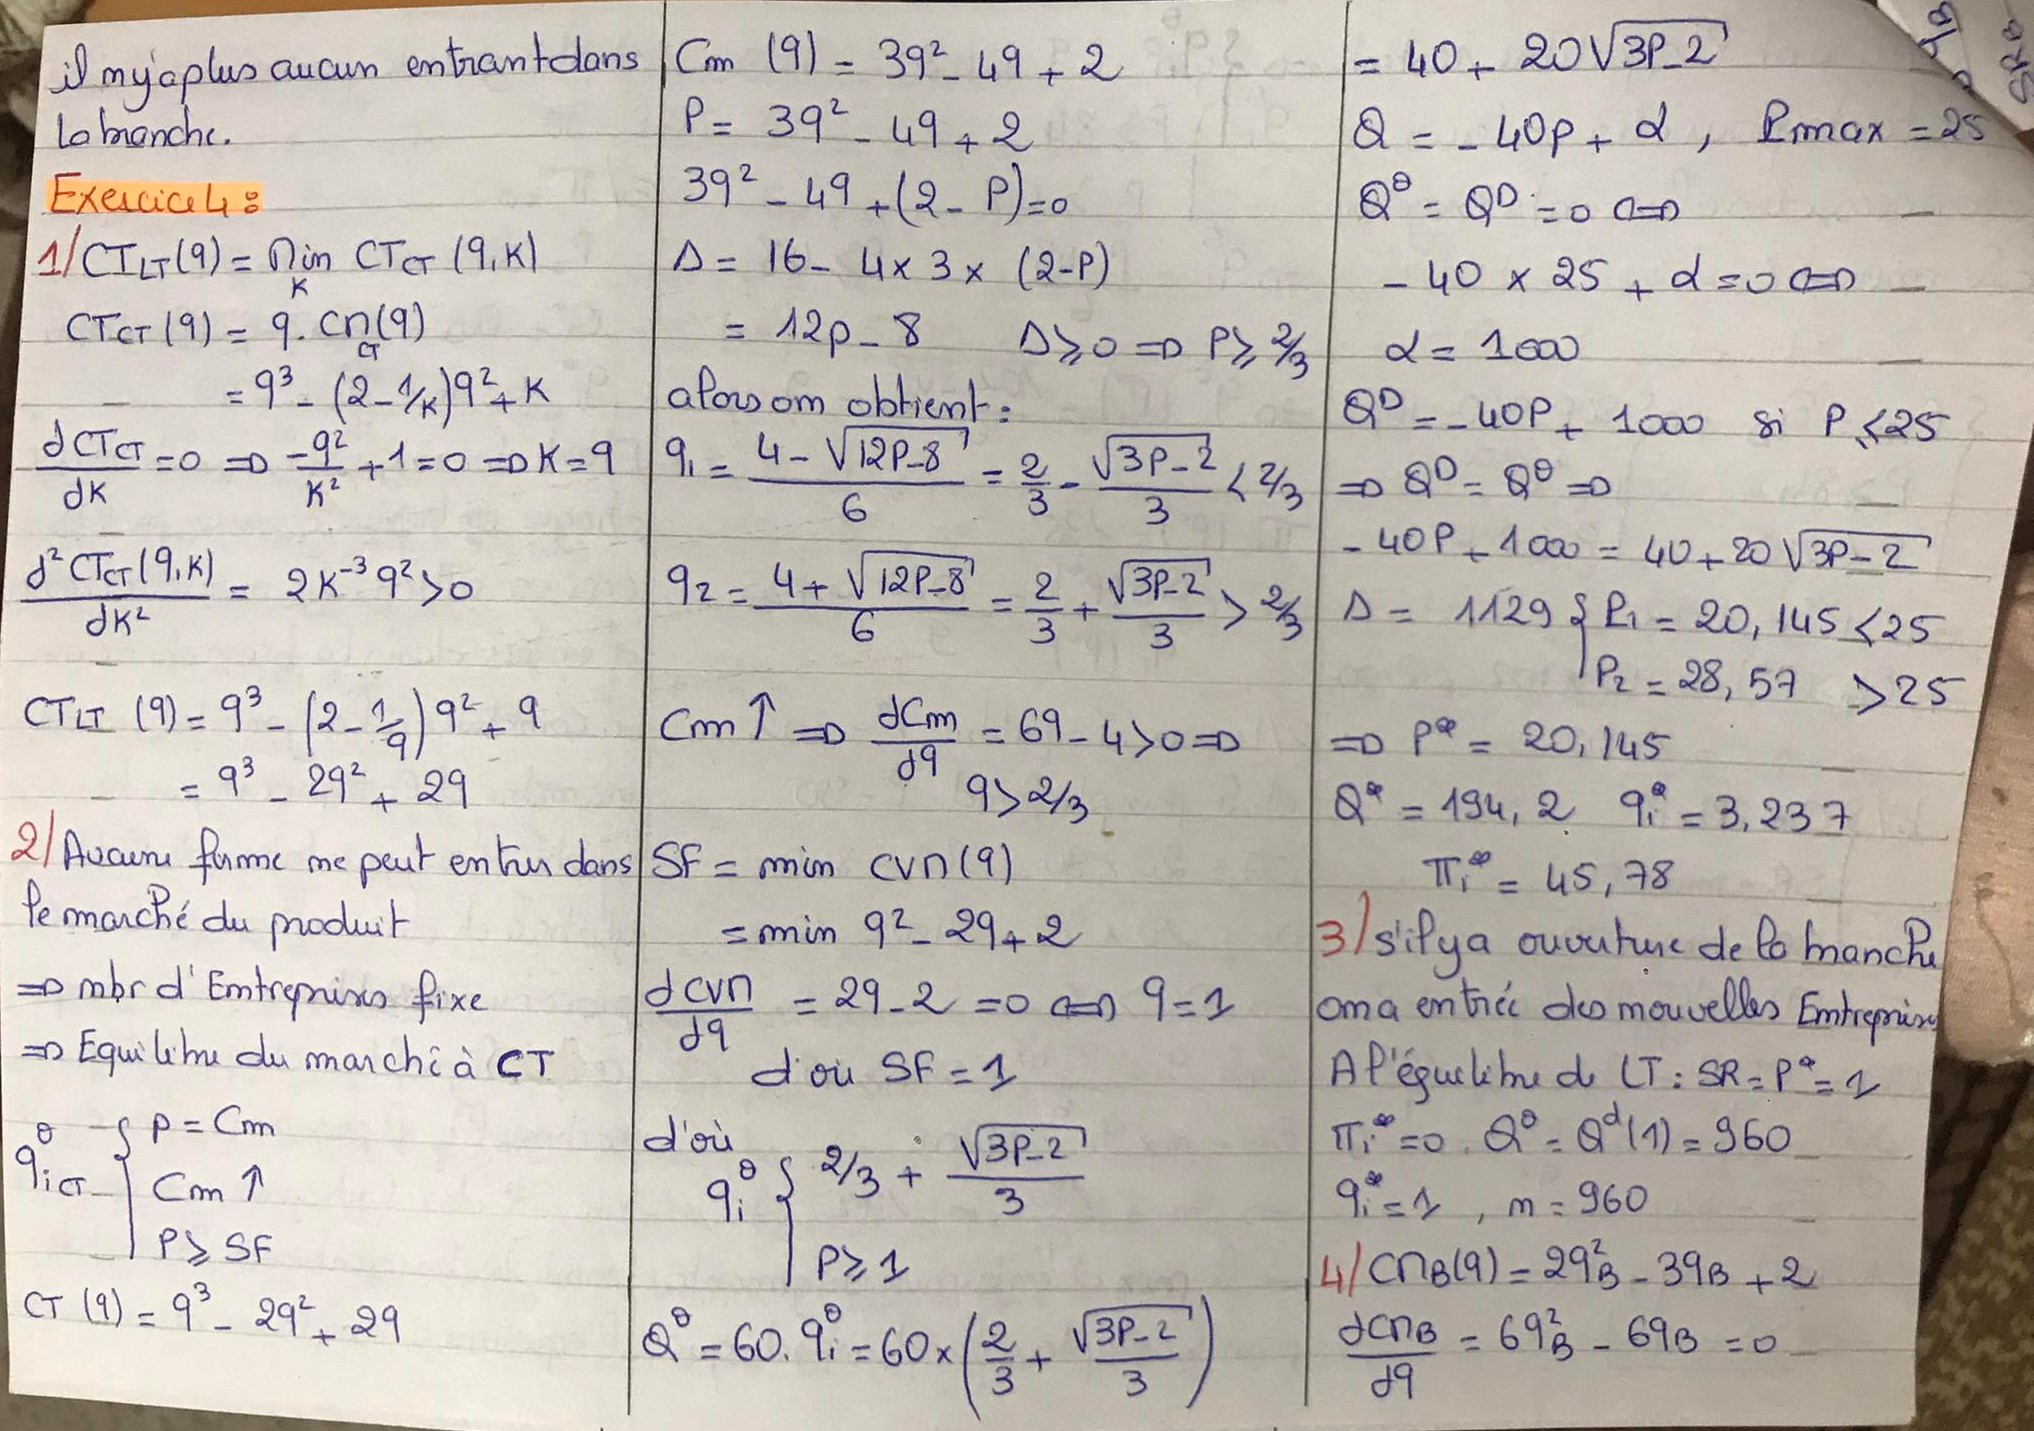 il n'y a plus aucun entrant dans
la branche.
Exercice 4 :
1/ CT_LT(q) = Min_K CT_CT (q, K)
CT_CT (q) = q. CM_CT(q)
= q³ - (2 - 1/K) q² + K
dCT_CT/dK = 0 ⇒ -q²/K² + 1 = 0 ⇒ K = q
d²CT_CT(q,K)/dK² = 2K⁻³q² > 0
CT_LT (q) = q³ - (2 - 1/q) q² + q
= q³ - 2q² + 2q
2/ Aucune firme ne peut entrer dans
le marché du produit
⇒ nbr d'Entreprises fixe
⇒ Equilibre du marché à CT
q_i CT° { P = Cm
Cm ↑
P ≥ SF
CT (q) = q³ - 2q² + 2q
Cm (q) = 3q² - 4q + 2
P = 3q² - 4q + 2
3q² - 4q + (2 - P) = 0
Δ = 16 - 4 × 3 × (2-P)
= 12p - 8 Δ ≥ 0 ⇒ P ≥ 2/3
alors on obtient :
q₁ = (4 - √(12P-8))/6 = 2/3 - √(3P-2)/3 < 2/3
q₂ = (4 + √(12P-8))/6 = 2/3 + √(3P-2)/3 > 2/3
Cm ↑ ⇒ dCm/dq = 6q - 4 > 0 ⇒
q > 2/3
SF = min CVM(q)
= min q² - 2q + 2
dCVM/dq = 2q - 2 = 0 ⇔ q = 1
d'où SF = 1
d'où
q_i° { 2/3 + √(3P-2)/3
P ≥ 1
Q° = 60. q_i° = 60 × (2/3 + √(3P-2)/3)
= 40 + 20√(3P-2)
Q = -40p + α , Pmax = 25
Q° = Q^D = 0 ⇔
-40 × 25 + α = 0 ⇔
α = 1000
Q^D = -40P + 1000 si P ≤ 25
⇒ Q^D = Q° ⇒
-40P + 1000 = 40 + 20√(3P-2)
Δ = 1129 { P₁ = 20,145 < 25
P₂ = 28,57 > 25
⇒ P* = 20,145
Q* = 194,2 q_i* = 3,237
π_i* = 45,78
3/ s'il y a ouverture de la branche
on a entrée des nouvelles Entreprises
A l'équilibre de LT : SR = P* = 1
π_i* = 0 . Q° = Q^d(1) = 960
q_i* = 1 , n = 960
4/ CM_B(q) = 2q²_B - 3q_B + 2
dCM_B/dq = 6q²_B - 6q_B = 0